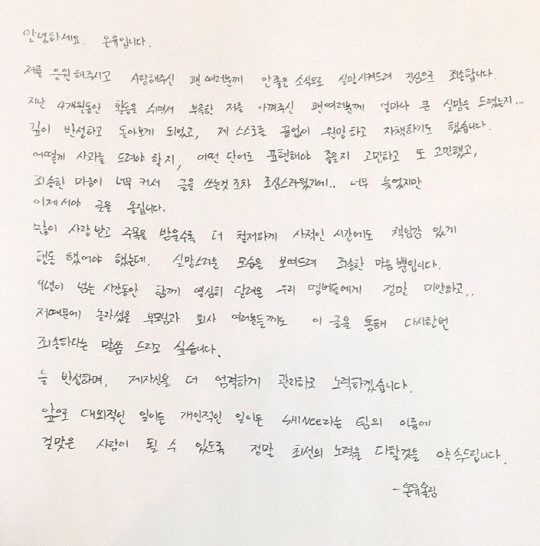 안녕하세요. 온유입니다.
저를 응원해주시고 사랑해주신 팬 여러분께 안좋은 소식으로 실망시켜드려 진심으로 죄송합니다.
지난 4개월동안 활동을 쉬면서 부족한 저를 아껴주신 팬여러분께 얼마나 큰 실망을 드렸는지...
깊이 반성하고 돌아보게 되었고, 제 스스로를 끝없이 원망하고 자책하기도 했습니다.
어떻게 사과를 드려야 할지, 어떤 단어로 표현해야 좋을지 고민하고 또 고민했고,
죄송한 마음이 너무 커서 글을 쓰는것 조차 조심스러웠기에.. 너무 늦었지만
이제서야 글을 옮깁니다.
많이 사랑받고 주목을 받을수록 더 철저하게 사적인 시간에도 책임감 있게
행동 했어야 했는데. 실망스러운 모습을 보여드려 죄송한 마음 뿐입니다.
9년이 넘는 시간동안 함께 열심히 달려온 우리 멤버들에게 정말 미안하고..
저때문에 놀라셨을 부모님과 회사 여러분들께도 이 글을 통해 다시한번
죄송하다는 말씀 드리고 싶습니다.
늘 반성하며, 제자신을 더 엄격하게 관리하고 노력하겠습니다.
앞으로 대외적인 일이든 개인적인 일이든 SHINee라는 팀의 이름에
걸맞은 사람이 될 수 있도록 정말 최선의 노력을 다할것을 약속드립니다.
-온유올림